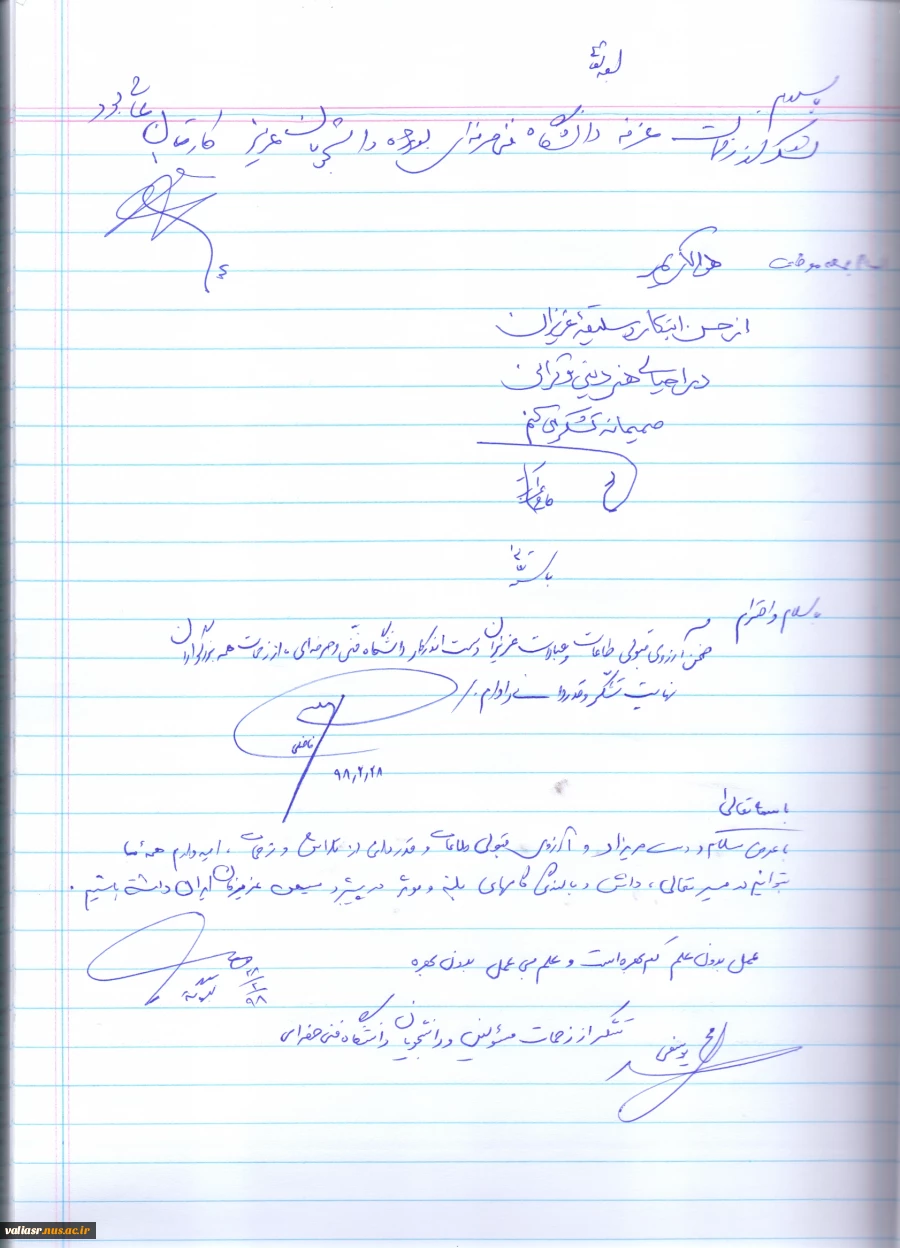 بسلام
تشکر از زحمات غرفه دانشگاه فنی حرفه‌ای بویژه دانشجویان عزیز کارتان عالی بود
هوالکریم
از حسن ابتکار و سلیقهٔ عزیزان
در احیای هنر دینی و قرآنی
صمیمانه تشکر می‌کنم
باسلام و احترام
ضمن آرزوی قبولی طاعات و عبادات عزیزان دست اندرکار دانشگاه فنی و حرفه‌ای، از زحمات همه بزرگواران
نهایت تشکر و قدردانی را دارم.
۹۸,۲,۲۸
باسمه تعالی
با عرض سلام و و آرزوی قبولی طاعات و قدردانی از تلاش و زحمات، امیدوارم همه ما
بتوانیم در مسیر تعالی، دانش و بالندگی گامهای بلند و موثر در پیشرو میهن عزیزمان ایران داشته باشیم.
عمل بدون علم کم بهره است و علم بی عمل بدون بهره
تشکر از زحمات مسؤلین و دانشجویان دانشگاه فنی حرفه‌ای
یوسفی
valiasr.nus.ac.ir